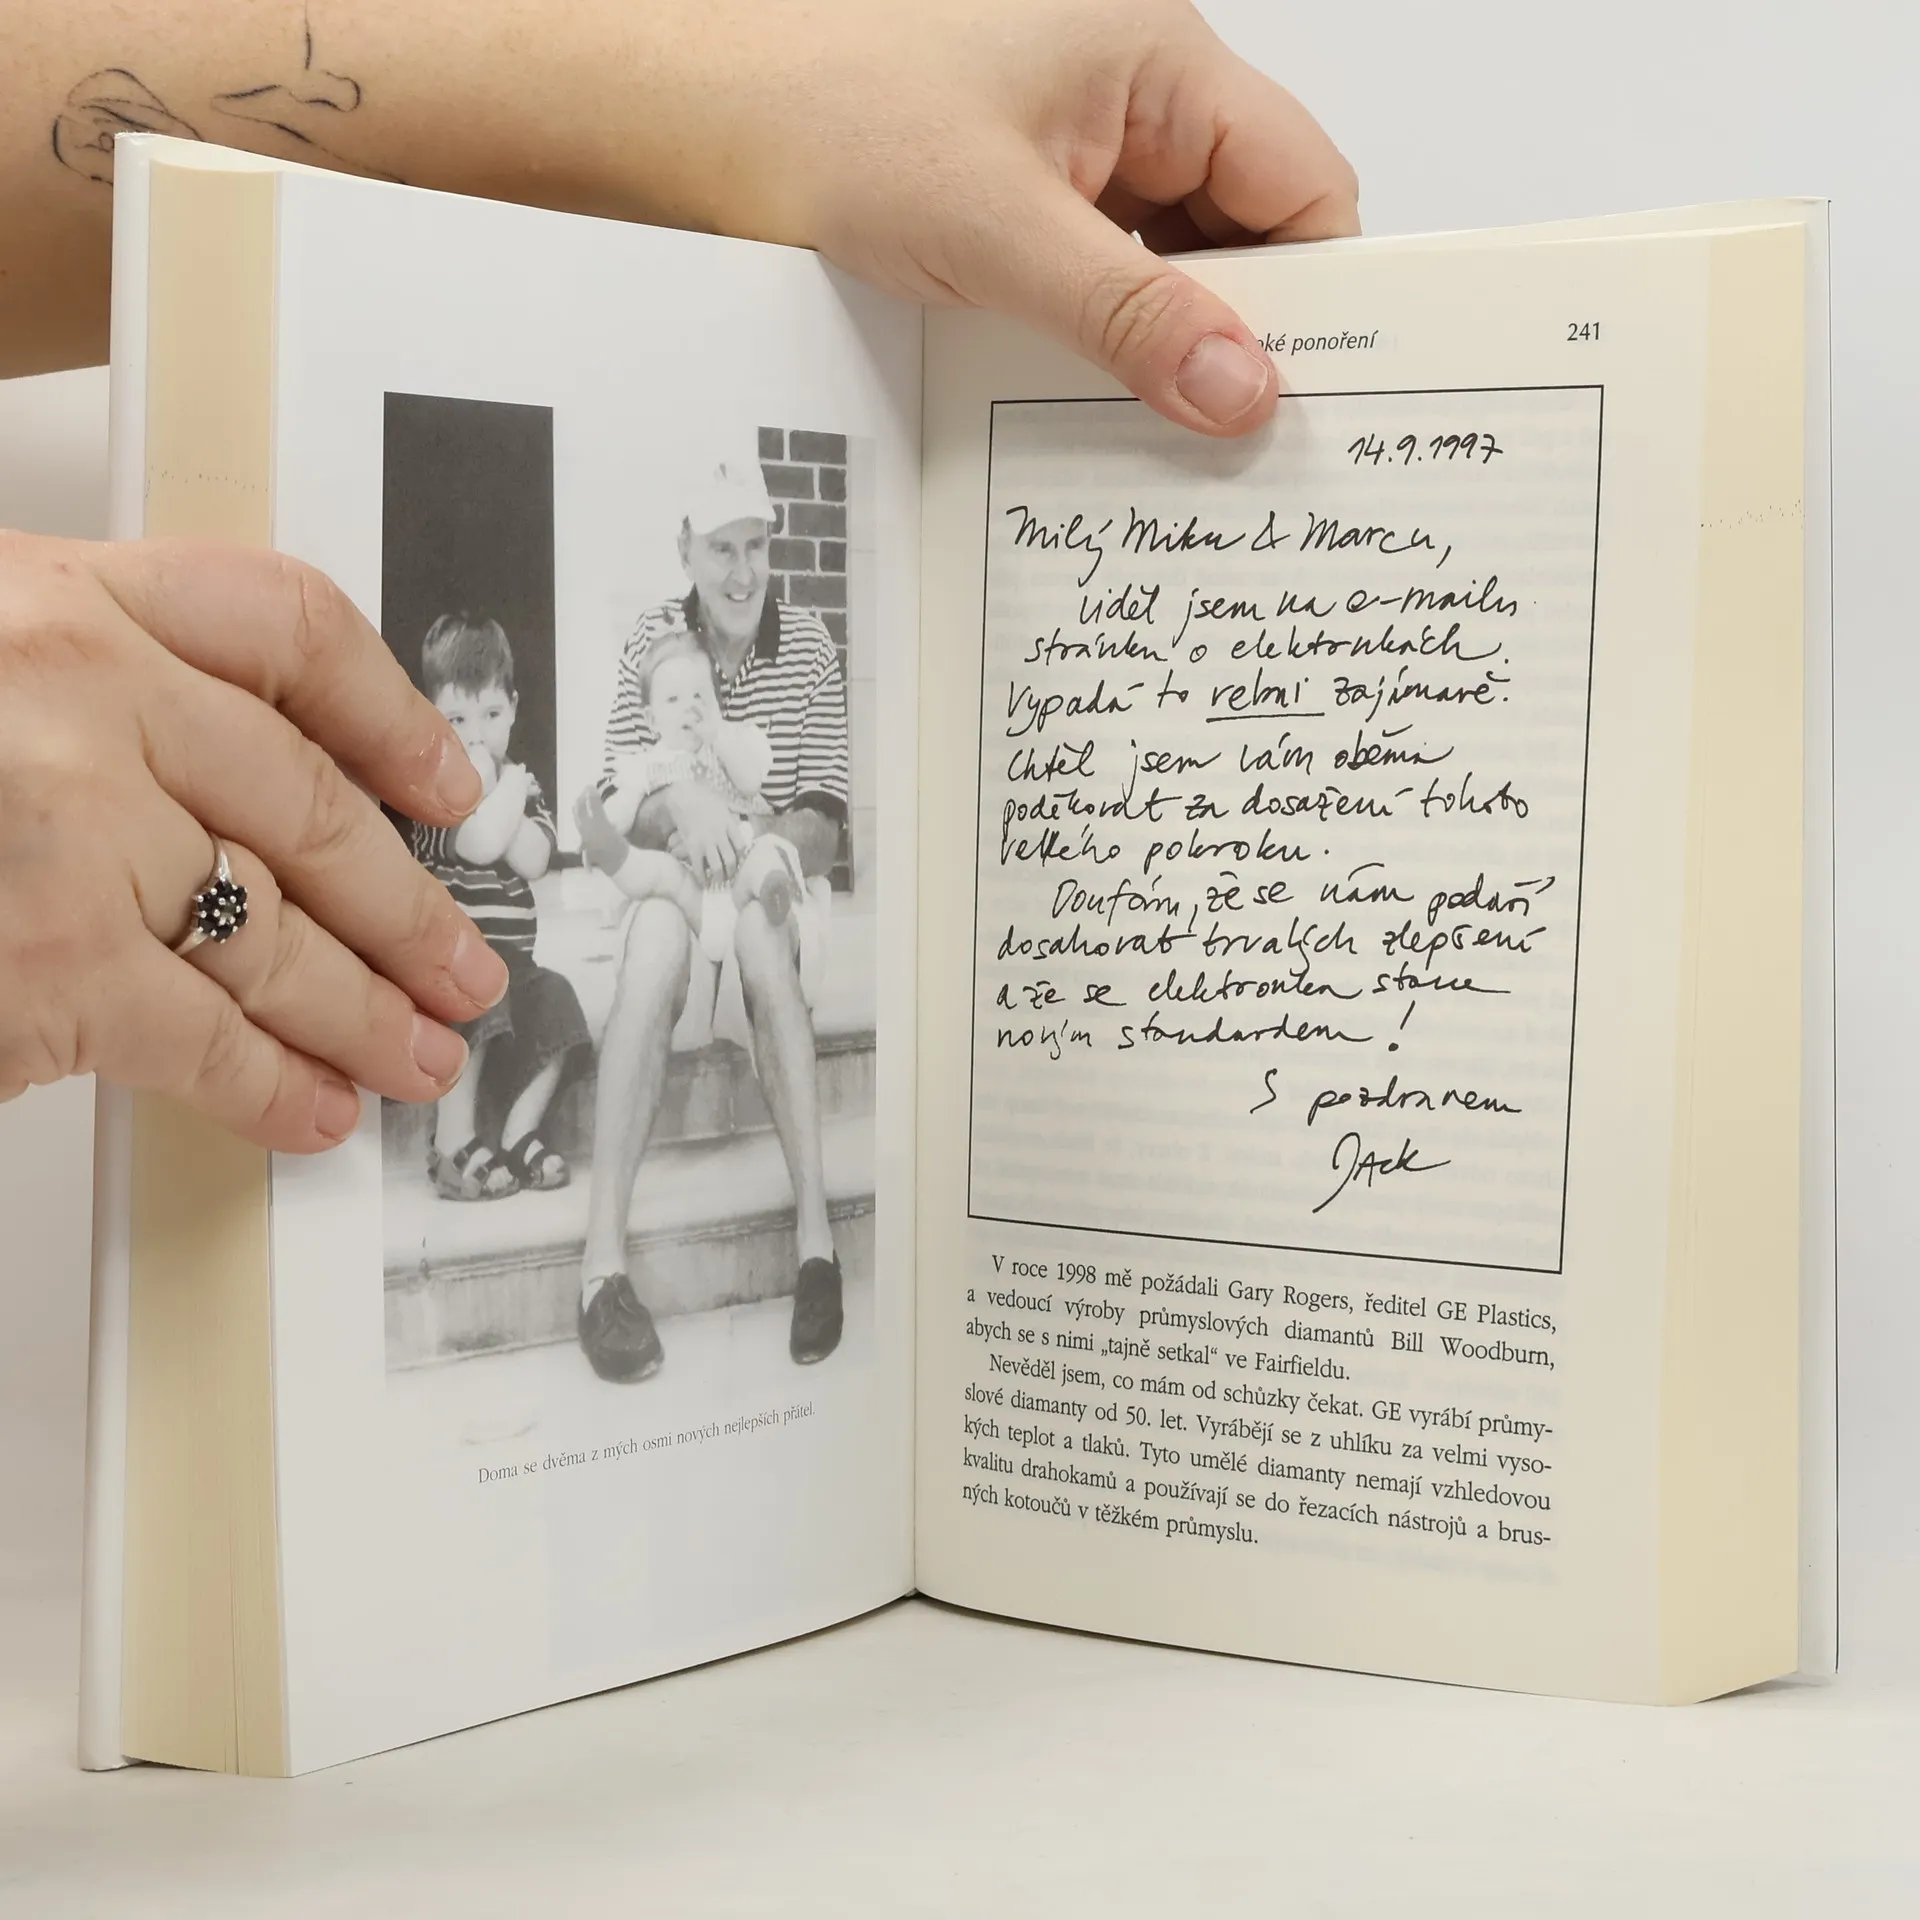 Doma se dvěma z mých osmi nových nejlepších přátel.
ké ponoření
241
14.9.1997
Milý Miku & Marcu,
viděl jsem na e-mailu
stránku o elektronkách.
Vypadá to velmi zajímavě.
Chtěl jsem vám oběma
poděkovat za dosažení tohoto
velkého pokroku.
Doufám, že se nám podaří
dosahovat trvalých zlepšení
a že se elektronka stane
novým standardem!
S pozdravem
Jack
V roce 1998 mě požádali Gary Rogers, ředitel GE Plastics,
a vedoucí výroby průmyslových diamantů Bill Woodburn,
abych se s nimi „tajně setkal“ ve Fairfieldu.
Nevěděl jsem, co mám od schůzky čekat. GE vyrábí průmy-
slové diamanty od 50. let. Vyrábějí se z uhlíku za velmi vyso-
kých teplot a tlaků. Tyto umělé diamanty nemají vzhledovou
kvalitu drahokamů a používají se do řezacích nástrojů a brus-
ných kotoučů v těžkém průmyslu.